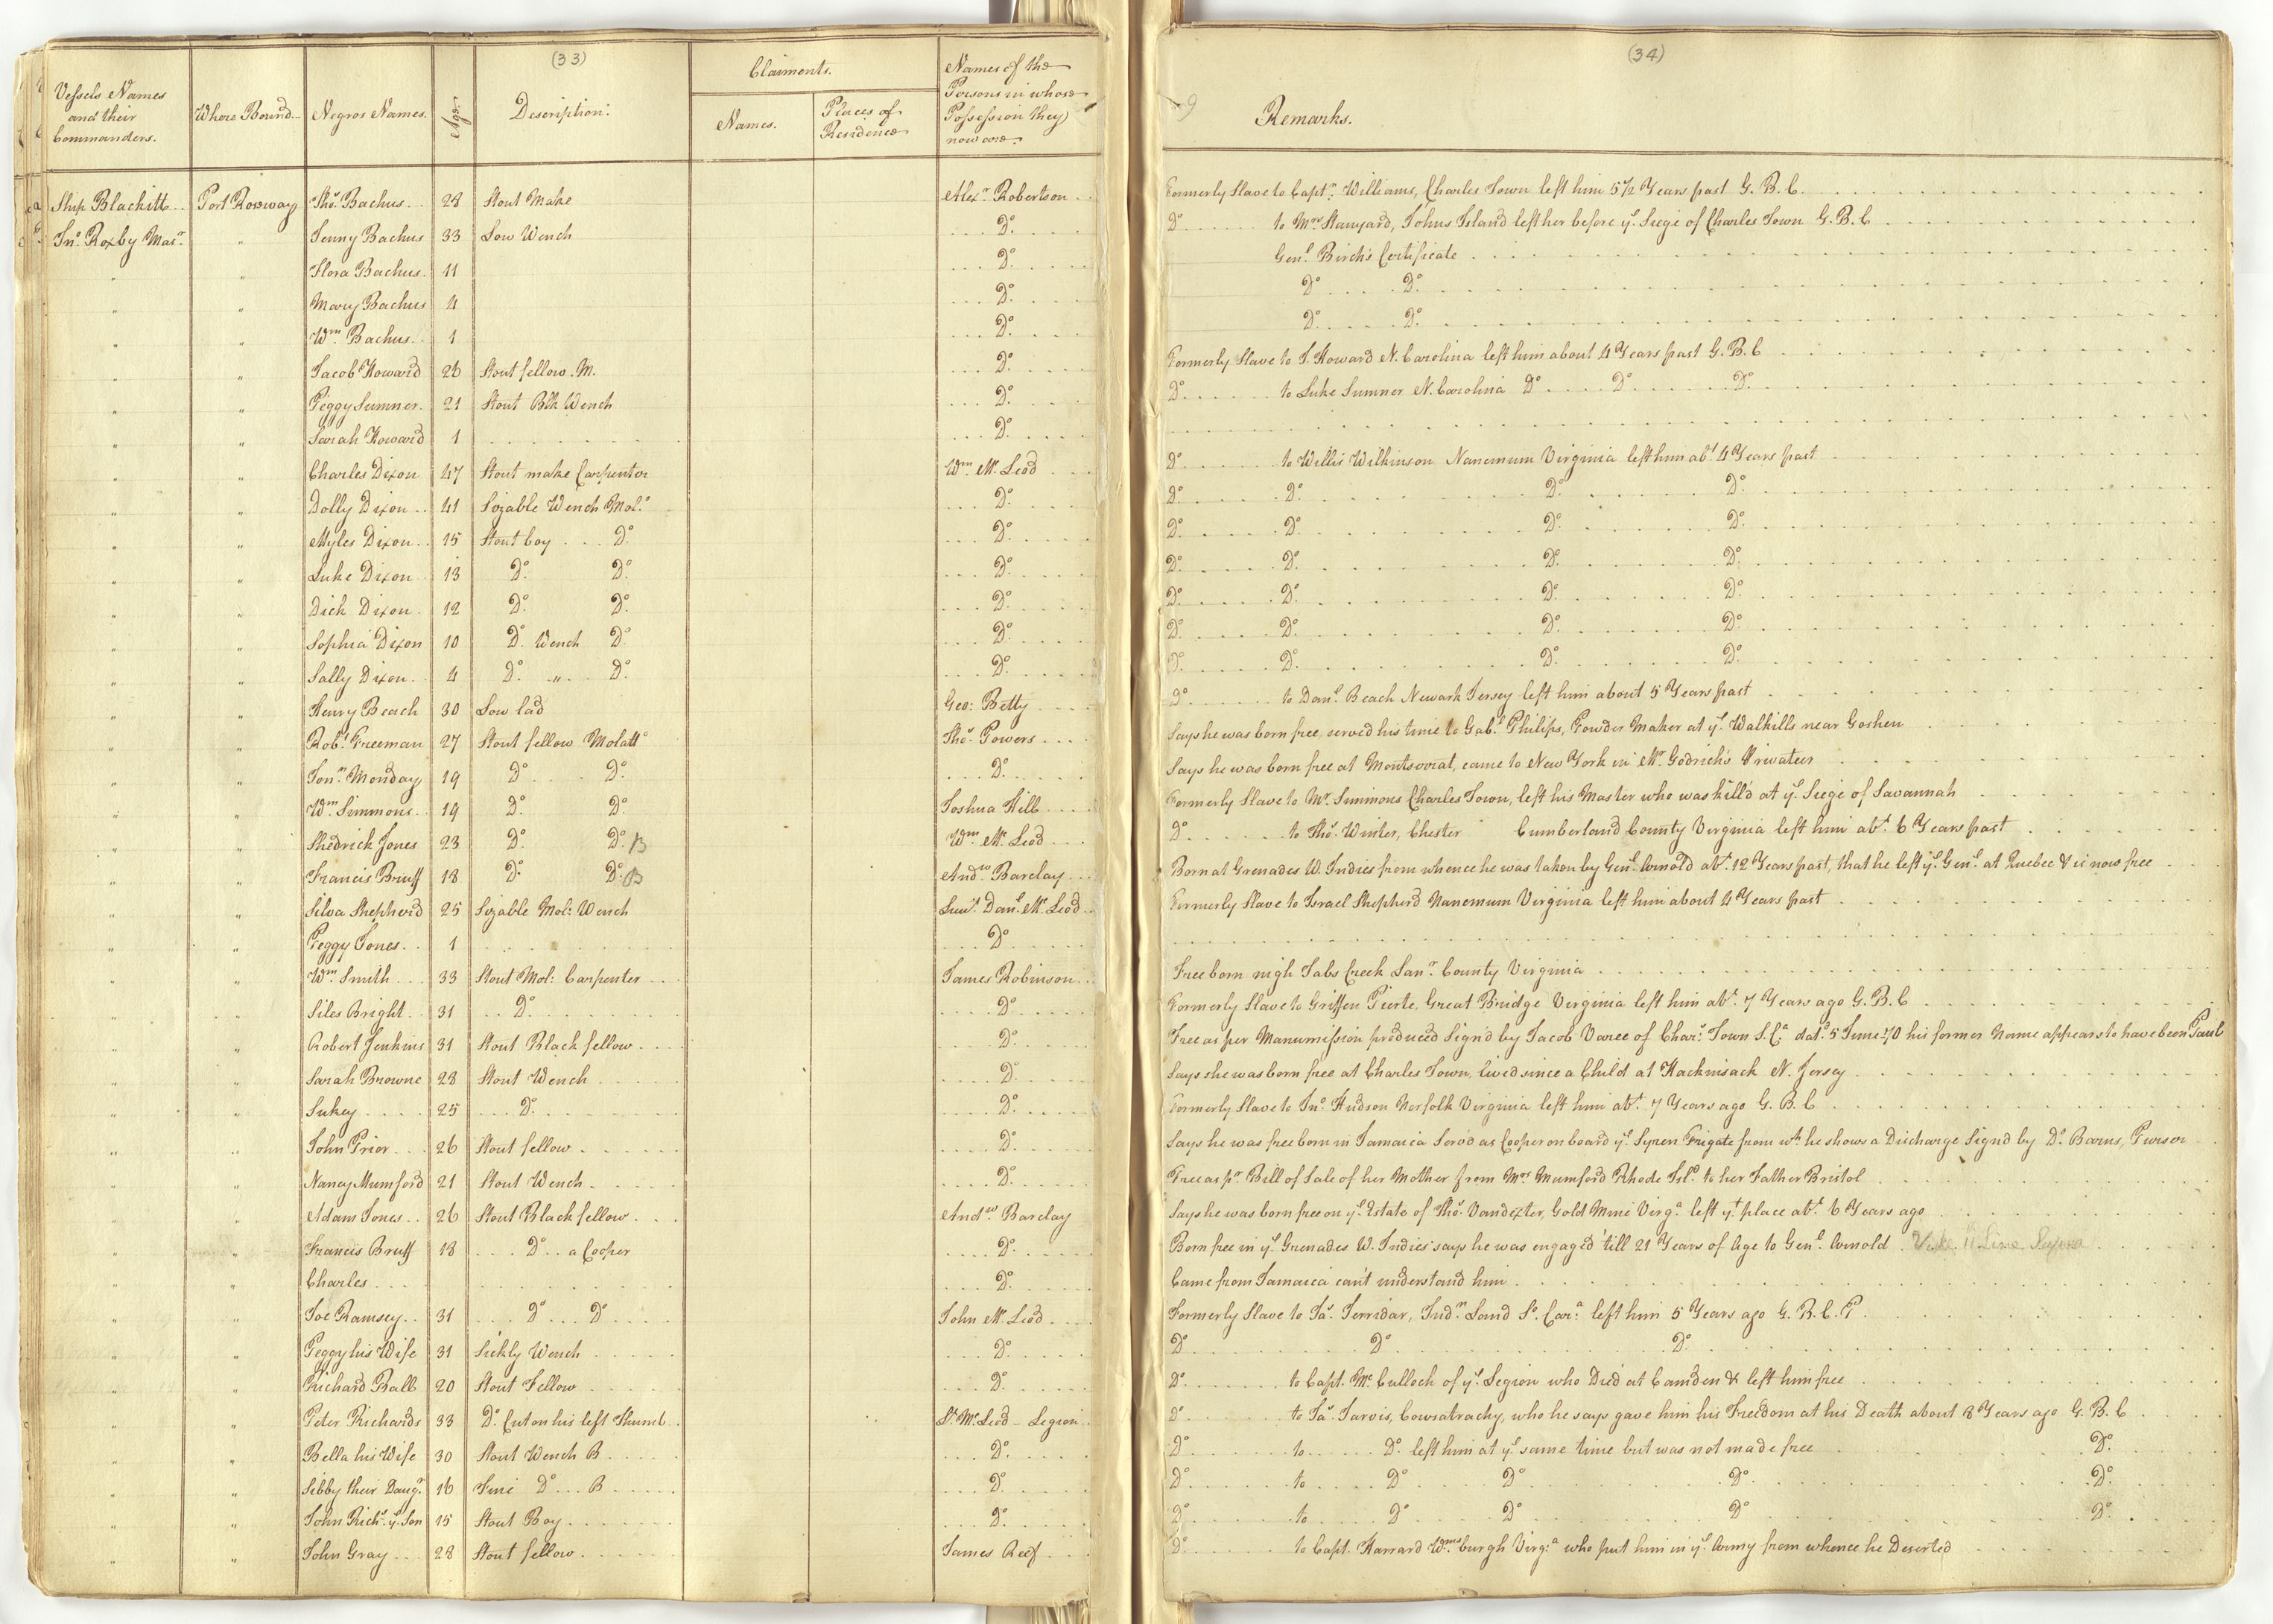 (33)
Vessels Names and their Commanders. Where Bound Negros Names. Age. Description: Claimants. Names. Places of Residence Names of the Persons in whose Possession they now are.
(34)
Remarks.
Ship Blackitt Port Roseway Thos. Bachus 28 Stout Make Alexr. Robertson Formerly Slave to Captn. Williams, Charles Town left him 5 1/2 Years past G. B. C.
Jno. Roxby Masr. " Jenny Bachus 33 Low Wench Do. Do. to Mrs. Stanyard, Johns Island left her before ye. Siege of Charles Town G. B. C
" " Flora Bachus 11 Do. Genl. Birch's Certificate
" " Mary Bachus 4 Do. Do. Do.
" " Wm. Bachus 1 Do. Do. Do.
" " Jacob Howard 26 Stout fellow. M. Do. Formerly Slave to J. Howard N. Carolina left him about 4 Years past G. B. C
" " Peggy Sumner 21 Stout Blk Wench Do. Do. to Luke Sumner N. Carolina Do. Do. Do.
" " Sarah Howard 1 Do.
" " Charles Dixon 47 Stout make Carpenter Wm. Mc. Leod Do. to Willis Wilkinson Nanemum Virginia left him abt. 4 Years past
" " Dolly Dixon 41 Sizable Wench Molo. Do. Do. Do. Do. Do.
" " Myles Dixon 15 Stout boy Do. Do. Do. Do. Do. Do.
" " Luke Dixon 13 Do. Do. Do. Do. Do. Do. Do.
" " Dick Dixon 12 Do. Do. Do. Do. Do. Do. Do.
" " Sophia Dixon 10 Do. Wench Do. Do. Do. Do. Do. Do.
" " Sally Dixon 4 Do. " Do. Do. Do. Do. Do. Do.
" " Henry Beach 30 Low lad Geo: Betty Do. to Danl. Beach Newark Jersey left him about 5 Years past
" " Robt. Freeman 27 Stout fellow Molatto Thos. Powers Says he was born free, served his time to Gabl. Philips, Powder Maker at ye. Walkills near Goshen
" " Jonn. Monday 19 Do. Do. Do. Says he was born free at Montserrat, came to New York in Mr. Godrich's Privateer
" " Wm. Simmons 19 Do. Do. Joshua Hill Formerly Slave to Mr. Simmons Charles Town, left his Master who was kill'd at ye. Siege of Savannah
" " Shedrick Jones 23 Do. Do. B Wm. Mc. Leod Do. to Thos. Winter, Chester Cumberland County Virginia left him abt. 6 Years past
" " Francis Bruff 18 Do. Do. B Andw. Barclay Born at Grenades W. Indies from whence he was taken by Genl. Arnold abt. 12 Years past, that he left ye. Genl. at Quebec & is now free
" " Silva Shepherd 25 Sizable Mol: Wench Lieut. Danl. Mc. Leod Formerly Slave to Israel Shepherd Nanemum Virginia left him about 4 Years past
" " Peggy Jones 1 Do.
" " Wm. Smith 33 Stout Mol: Carpenter James Robinson Free born nigh Tabs Creek Lanr. County Virginia
" " Siles Bright 31 Do. Do. Formerly Slave to Griffen Pierte, Great Bridge Virginia left him abt. 7 Years ago G. B. C
" " Robert Jenkins 31 Stout Black fellow Do. Free as per Manumission produced Sign'd by Jacob Varee of Chars. Town S. Ca. datd. 5 June 70 his former Name appears to have been Paul
" " Sarah Browne 28 Stout Wench Do. Says she was born free at Charles Town, lived since a Child at Hackinsack N. Jersey
" " Sukey 25 Do. Do. Formerly Slave to Jno. Hudson Norfolk Virginia left him abt. 7 Years ago G. B. C
" " John Prior 26 Stout fellow Do. Says he was free born in Jamaica Serv'd as Cooper on board ye. Syren Frigate from wh. he shows a Discharge Sign'd by Do. Barns, Purser
" " Nancy Mumford 21 Stout Wench Do. Free as pr. Bill of Sale of her Mother from Mrs. Mumford Rhode Isld. to her Father Bristol
" " Adam Jones 26 Stout Black fellow Andw. Barclay Says he was born free on ye. Estate of Thos. Vandexter, Gold Mine Virga. left yt. place abt. 6 Years ago
" " Francis Bruff 18 Do. a Cooper Do. Born free in ye. Grenades W. Indies says he was engaged 'till 21 Years of Age to Genl. Arnold. Vide 11 Line Supra
" " Charles Do. Came from Jamaica can't understand him
" " Joe Ramsey 31 Do. Do. John Mc. Leod Formerly Slave to Jas. Terridar, Indn. Land So. Cara. left him 5 Years ago G. B. C. P
" " Peggy his Wife 31 Sickly Wench Do. Do. Do. Do.
" " Richard Ball 20 Stout Fellow Do. Do. to Capt. Mc. Culloch of ye. Legion who Died at Camden & left him free
" " Peter Richards 33 Do. Cut on his left Thumb Lt. Mc. Leod - Legion Do. to Jas. Jarvis, Cowratrachy, who he says gave him his Freedom at his Death about 8 Years ago G. B. C
" " Bella his Wife 30 Stout Wench B Do. Do. to Do. left him at ye. same time but was not made free Do.
" " Sibby their Daugr. 16 Fine Do. B Do. Do. to Do. Do. Do. Do.
" " John Richs. ye. Son 15 Stout Boy Do. Do. to Do. Do. Do. Do.
" " John Gray 28 Stout fellow James Reef Do. to Capt. Harrard Wmsburgh Virga. who put him in ye. Army from whence he Deserted